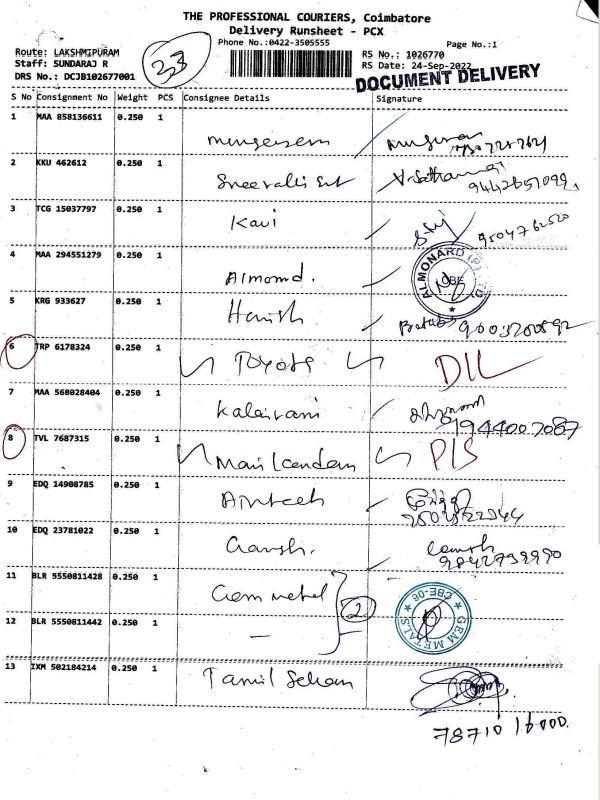 THE PROFESSIONAL COURIERS, Coimbatore
Delivery Runsheet - PCX
Phone No.:0422-3505555
Page No.:1
Route: LAKSHMIPURAM
RS No.: 1026770
Staff: SUNDARAJ R
33
RS Date: 24-Sep-2022
DRS No.: DCJB102677001
DOCUMENT DELIVERY
S No Consignment No Weight PCS Consignee Details Signature
1 MAA 858136611 0.250 1
2 KKU 462612 0.250 1
3 TCG 15037797 0.250 1 Kavi 9504762520
4 MAA 294551279 0.250 1 Almond. ALMONARD (P)
5 KRG 933627 0.250 1 Harish 9003200892
6 TRP 6178324 0.250 1 Toyota DIL
7 MAA 568028404 0.250 1 Kalaivani 9944007087
8 TVL 7687315 0.250 1 Manikandan PIS
9 EDQ 14908785 0.250 1
10 EDQ 23781022 0.250 1 9842739990
11 BLR 5550811428 0.250 1 Gem metal 2 GEM METALS CBE-06
12 BLR 5550811442 0.250 1 —
13 IXM 502184214 0.250 1 Tamil Selvan
78710 16000.